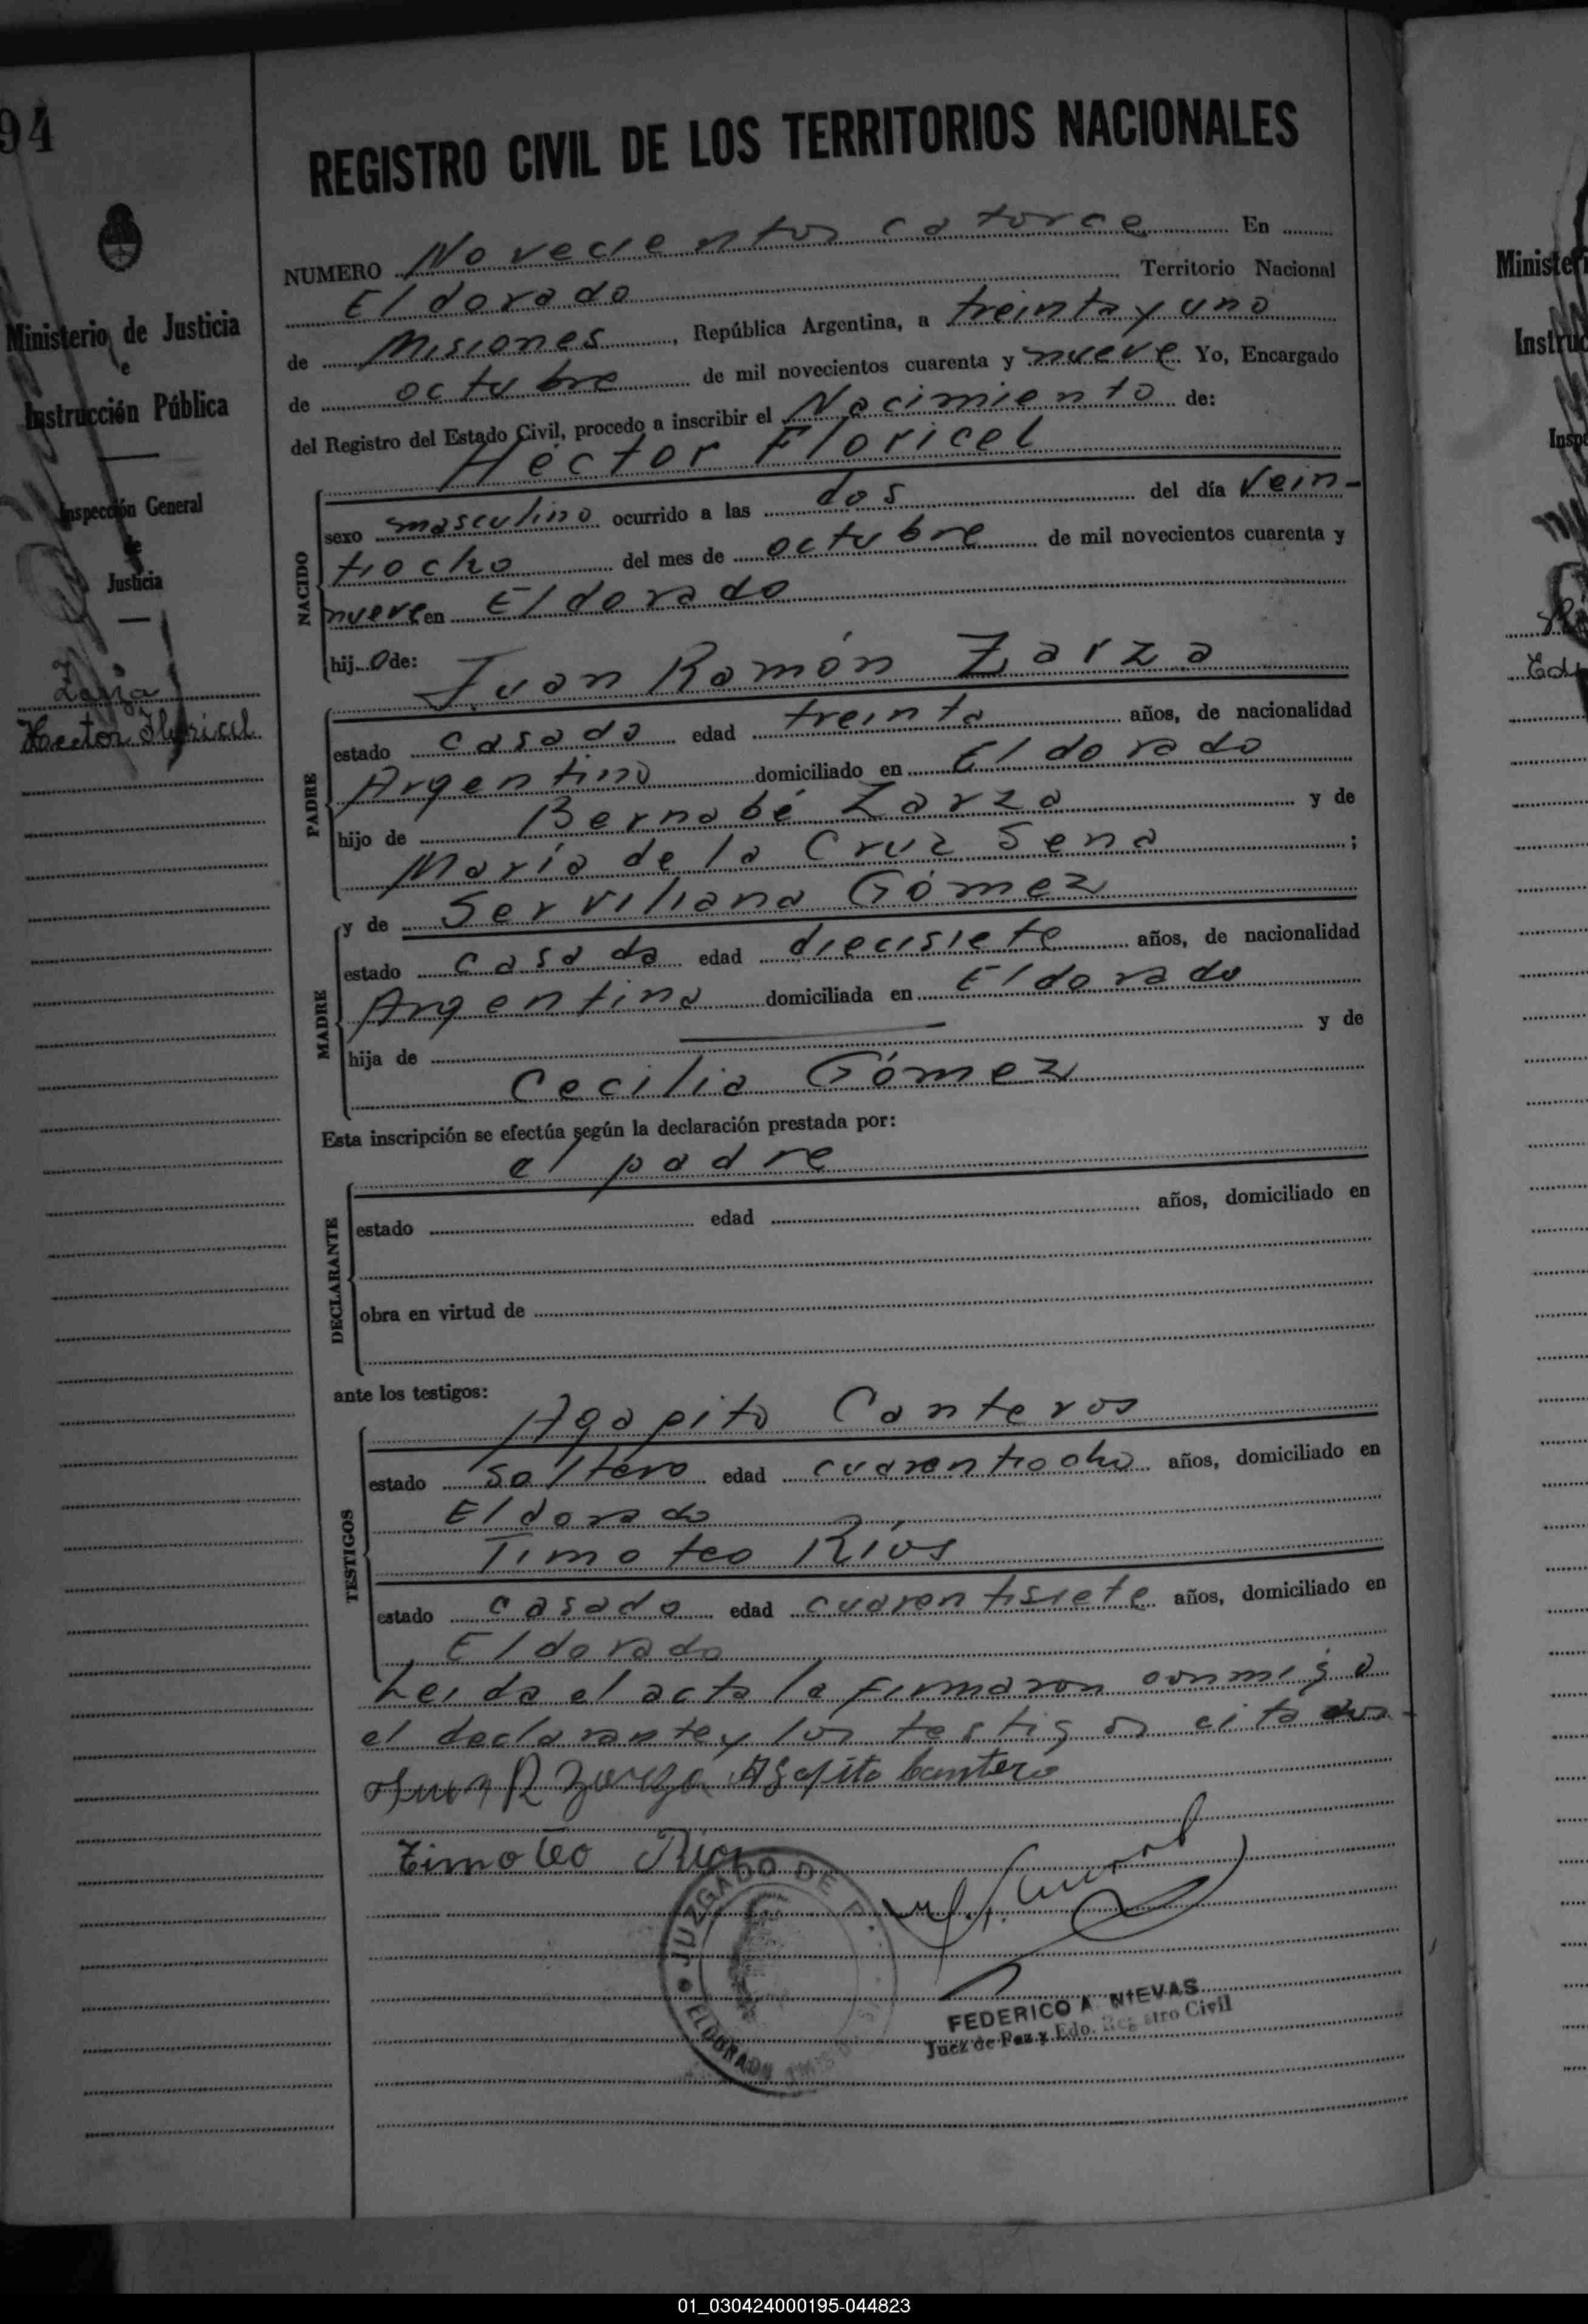 94
Ministerio de Justicia
e
Instrucción Pública
Inspección General
de
Justicia
Zarza
Hector Floricel
REGISTRO CIVIL DE LOS TERRITORIOS NACIONALES
NUMERO Novecientos catorce En
Eldorado Territorio Nacional
de Misiones, República Argentina, a treinta y uno
de octubre de mil novecientos cuarenta y nueve Yo, Encargado
del Registro del Estado Civil, procedo a inscribir el Nacimiento de:
Héctor Floricel
NACIDO
sexo masculino ocurrido a las dos del día vein-
tiocho del mes de octubre de mil novecientos cuarenta y
nueve en Eldorado
hijo de:
Juan Ramón Zarza
PADRE
estado casado edad treinta años, de nacionalidad
Argentino domiciliado en Eldorado
hijo de Bernabé Zarza y de
María de la Cruz Sena ;
y de Serviliana Gómez
MADRE
estado casada edad diecisiete años, de nacionalidad
Argentina domiciliada en Eldorado
hija de — y de
Cecilia Gómez
Esta inscripción se efectúa según la declaración prestada por:
el padre
DECLARANTE
estado edad años, domiciliado en
obra en virtud de
ante los testigos:
Agapito Canteros
TESTIGOS
estado soltero edad cuarentiocho años, domiciliado en
Eldorado
Timoteo Ríos
estado casado edad cuarentisiete años, domiciliado en
Eldorado
Leida el acta la firmaron conmigo
el declarante y los testigos citados.-
Juan R Zarza Agapito Cantero
Timoteo Rios
JUZGADO DE P
ELDORADO
FEDERICO A. NIEVAS
Juez de Paz y Edo. Registro Civil
Minister
Instruc
Inspe
01_030424000195-044823